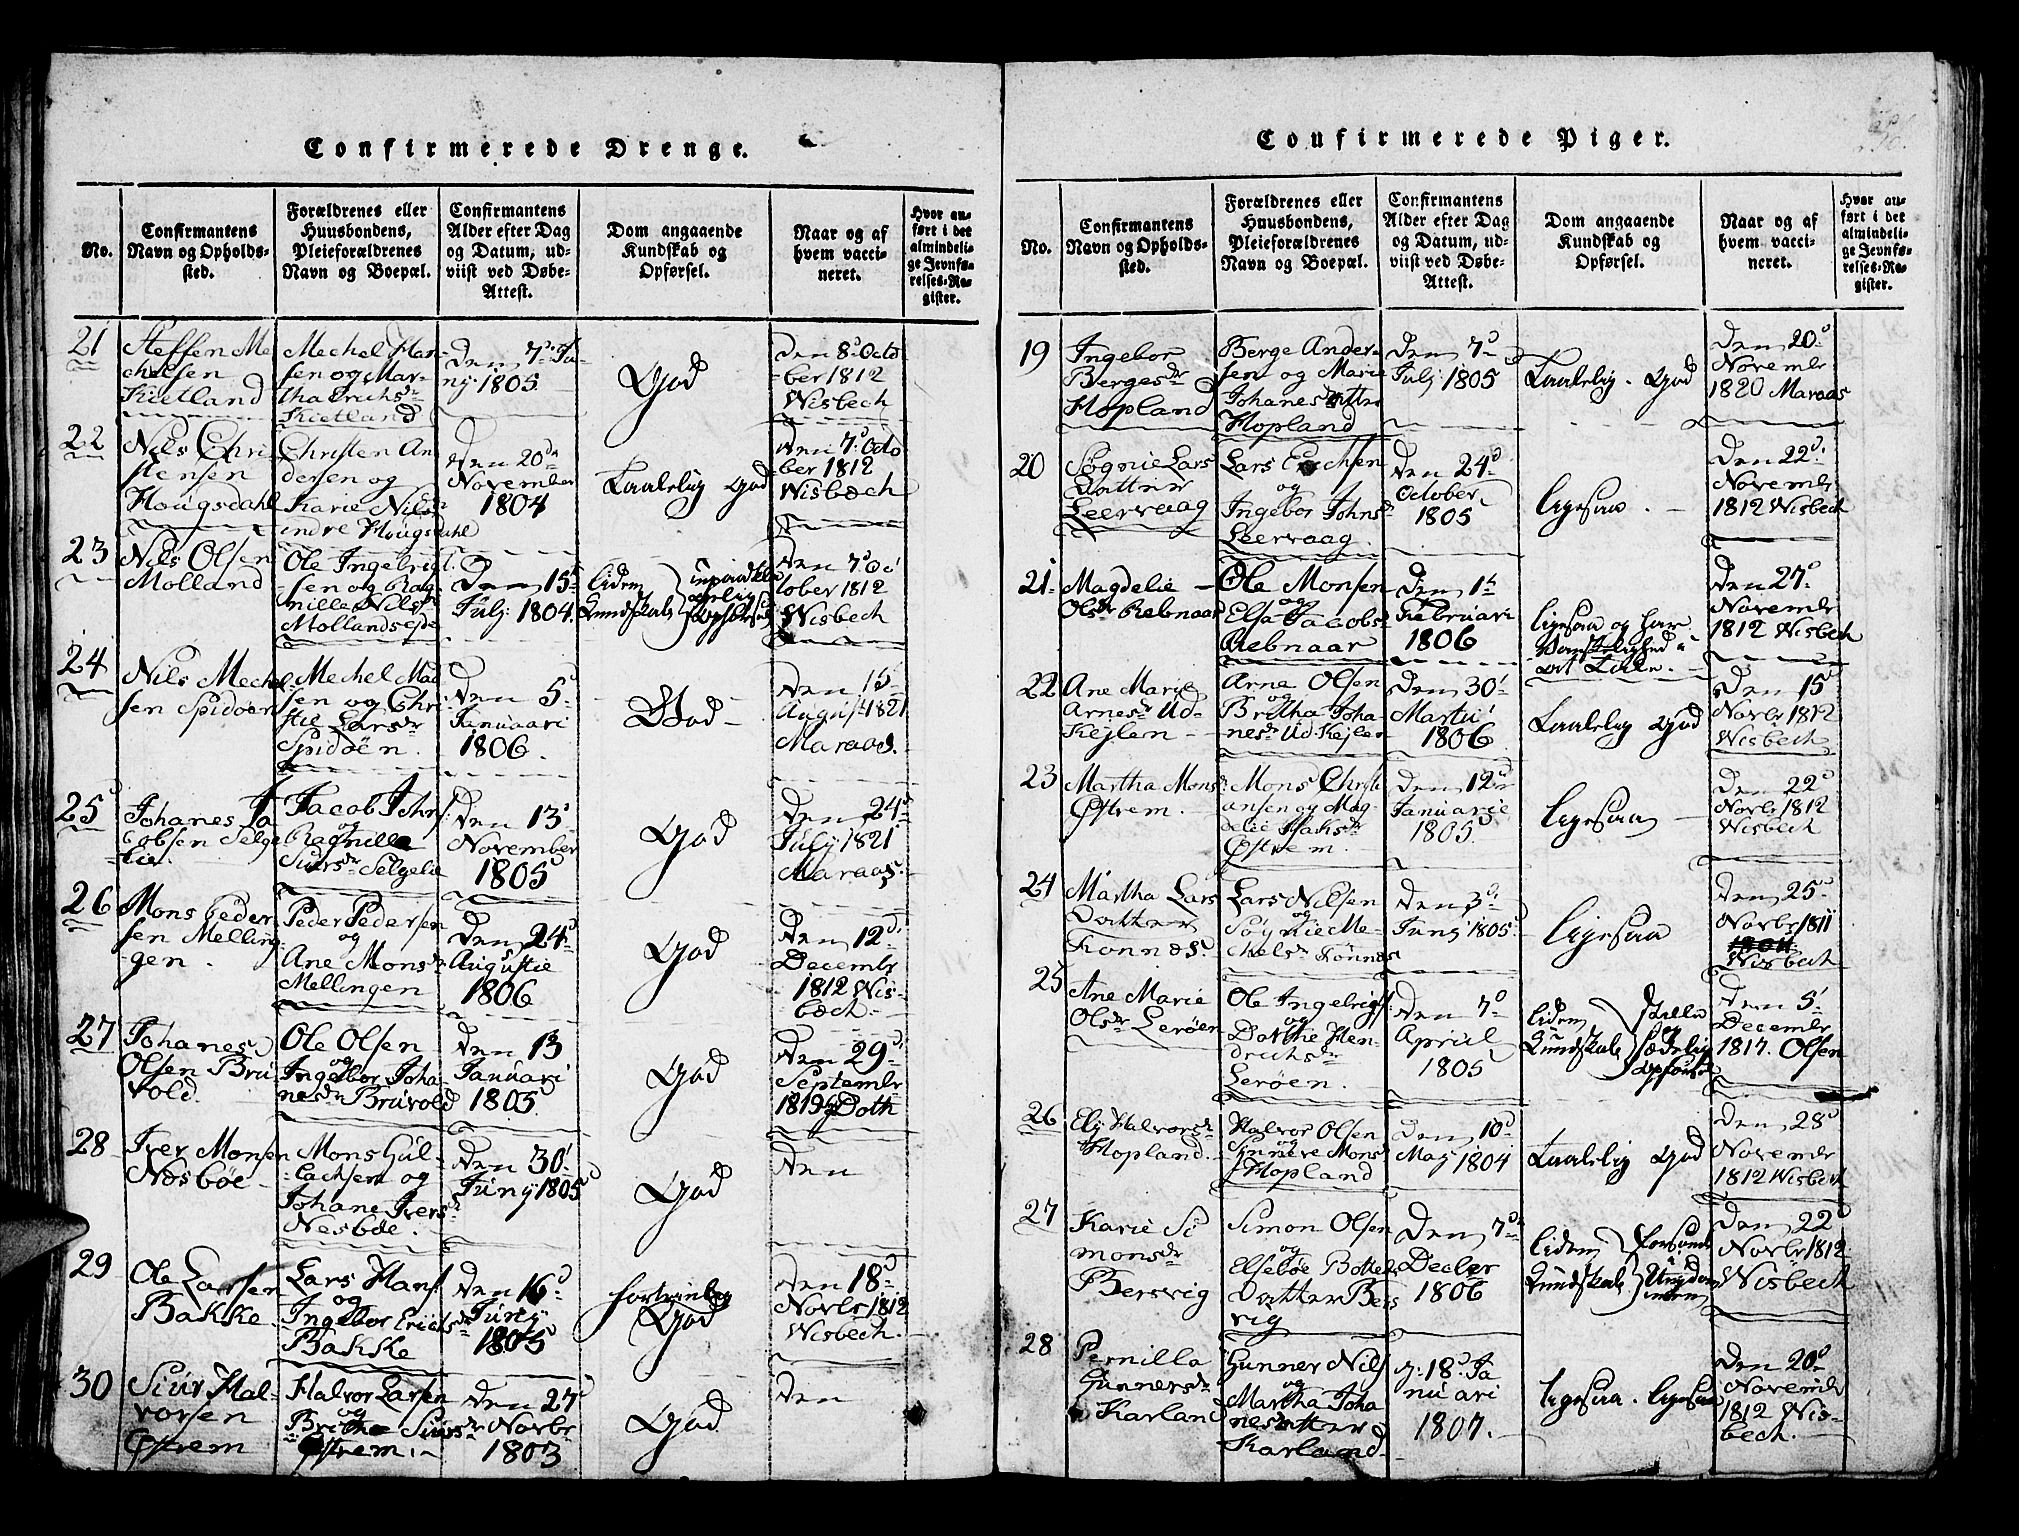 Confirmerede Drenge.
No.
Confirmantens
Navn og Opholds-
sted.
Forældrenes eller
Huusbondens,
Pleieforældrenes
Navn og Boepæl.
Confirmantens
Alder efter Dag
og Datum, ud-
viist ved Døbe-
Attest.
Dom angaaende
Kundskab og
Opførsel.
Naar og af
hvem vacci-
neret.
Hvor an-
ført i det
almindeli-
ge Jevnfø-
relses-Re-
gister.
21
Steffen Me
chelsen
Kietland
Mechel Han-
sen og Mar-
tha Erichsdr
Kietland
Den 7d Ju-
nij 1805
God
Den 8d Octo
ber 1812
Wisbech
22
Nils Chri
stensen
Hougsdahl
Christen An
dersen og
Karie Nils
indre Hougsdahl
Den 20de
November
1804
Taalelig God
Den 7d Octo
ber 1812
Wisbech
23
Nils Olsen
Molland
Ole Ingebrigt
sen og Rag-
nille Nilsdr
Mollandseide
Den 15d
Julj: 1804.
liden
Kundskab
Den 7d Oc
tober 1812
Wisbech
24
Nils Mechel-
sen Spidøen
Mechel Mad
sen og Chri-
stie Larsdr
Spidøen.
Den 5d
Januari
1806.
God
Den 15
August 1821
Maraas.
25
Johanes Ja
cobsen Selge
lie.
Jacob Johs:
og
Ragnille
Siursdr Selgelie
Den 13d
November
1805
God
Den 24d
July 1821
Maraas.
26
Mons Peder
sen Melling-
gen.
Peder Pedersen
og
Ane Monsdr
Mellingen
Den 24d
Augustie
1806
God
Den 12d
Decembr
1812 Wis-
bech.
27
Johanes
Olsen Bru
vold.
Ole Olsen
og
Ingebor Joha-
nesdr Bruvold
Den 13
Januari
1805
God
Den 29d
Septembr
1819 Doth
28
Iver Monsen
Næsbøe
Mons Gul-
lachsen og
Johane Ivers
Nesbøe.
Den 30d
Junij 1805
God
Den
29
Ole Larsen
Bakke.
Lars Hans
og
Ingebor Erichsdr
Bakke
Den 16d
Junij
1805
fortrinlig
God
Den 18d
Novbr 1812
Wisbech.
30
Siur Hal-
vorsen
Østrem
Halvor Larsen
og
Brithe Siursdr
Østrem.
Den 27d
Novbr
1803
God
Den
Confirmerede Piger.
No.
Confirmantens
Navn og Opholds-
sted.
Forældrenes eller
Huusbondens,
Pleieforældrenes
Navn og Boepæl.
Confirmantens
Alder efter Dag
og Datum, ud-
viist ved Døbe-
Attest.
Dom angaaende
Kundskab og
Opførsel.
Naar og af
hvem vacci-
neret.
Hvor an-
ført i det
almindeli-
ge Jevnfø-
relses-Re-
gister.
19
Ingebor
Bergesdr
Hopland
Berge Ander-
sen og Marie
Johanesdatter
Hopland
Den 7d
Julj 1805
Taalelig. God
Den 20d
Novembr
1820 Maraas
20
Søgnie Lars
Datter
Leervaag
Lars Erichsen
og
Ingebor Johns
Leervaag.
Den 24d
October
1805
ligesaa.
Den 22d
Novembr
1812 Wisbech
21
Magdelie
Olsdr Rebnaar
Ole Monsen
og
Elsa Jacobs
Rebnaar
Den 1t
Februari
1806
ligesaa og har
Den 27d
Novembr
1812 Wisbech
22
Ane Marie
Arnesdr Ud-
Kejlen
Arne Olsen
og
Britha Joha-
nesdr Ud-Kejlen
Den 30d
Martii
1806
Taalelig God
Den 15d
Novbr 1812
Wisbech
23
Martha Monsdr
Østrem.
Mons Christi
ansen og Mag-
delie Isaksdr
Østrem.
Den 12d
Januarie
1805
ligesaa
Den 22d
Novbr 1812
Wisbech
24
Martha Lars
Datter
Tonnæs
Lars Nilsen
og
Søgnie Me-
chelsdr Tonnæs
Den 3d
Junj 1805
ligesaa
Den 25d
Novbr 1811
Wisbech
25
Ane Marie
Olsdr Lerøen
Ole Ingebrigts
og
Dorthe Hen-
drichsdr
Lerøen.
Den 7d
Apriel
1805
liden
Kundskab
stille
og
sædelig
opførsel
Den 5d
Decembr
1817. Olsen
26
Elj Halvorsdr
Hopland.
Halvor Olsen
og
Sinneve Mons
Hopland
Den 10d
Maj 1804
Taalelig God
Den 28d
Novembr
1812 Wisbech
27
Karie Si
monsdr
Bersvig
Simon Olsen
og
Elsebøe Bottels
Datter Bers
vig
Den 7de
Decbr
1806
liden
Kundskab
Den 22d
Novbr 1812
Wisbech
28
Pernilla
Gunnersdr
Karland
Gunner Nils
og
Martha Joha
nesdatter
Karland
d: 18d Ja
nuari
1807.
ligesaa. ligesaa
Den 20d
Novembr
1812 Wis-
bech.